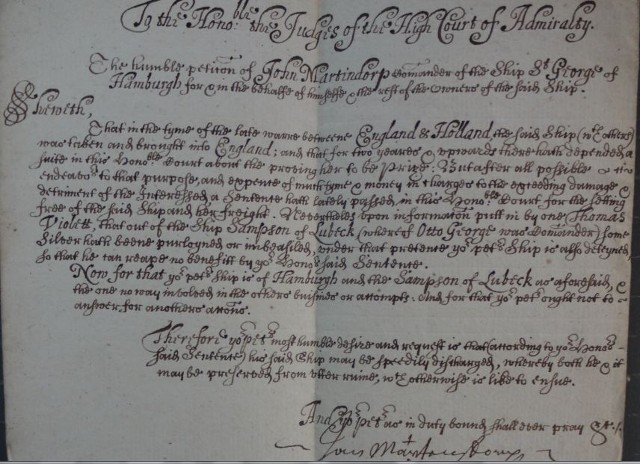 To the Hono:ble the Judges of the High Court of Admiralty.
The humble petic̃on of John Martindorp Com̃ander of the Ship St. George of
Hamburgh for & in the behalfe of himselfe & the rest of the Owners of the said Ship.
Sheweth,
That in the tyme of the late warre betweene England & Holland the said Ship (wth others)
was taken and brought into England; and that for two yeares & upwards there hath depended a
suite in this Honoble Court about the proving her to be Prize: But after all possible
endeavors to that purpose, and expence of much tyme & money in Charges to the exceeding damage &
detriment of the Interessed, a Sentence hath lately passed in this Honoble Court for the setting
free of the said Ship and her freight. Nevertheles upon informac̃on putt in by one Thomas
Violett, that out of the Ship Sampson of Lubeck (whereof Otto George was Com̃ander) some
Silver hath beene purloyned or imbeasiled, under that pretence yor petrs Ship is also deteyned
so that he can reape no benefitt by yor Honors said Sentence.
Now for that yor petrs ship is of Hamburgh and the Sampson of Lubeck as aforesaid, &
the one no way involved in the others buisines or attempts: And for that yor petr ought not to
answer for anothers acc̃ons.
Therefore yor petrs most humble desire and request is that according to yor Honors
said Sentence his said Ship may be speedily discharged, whereby both he & it
may be preserved from utter ruine, wch otherwise is like to ensue.
And yor petr as in duty bound shall ever pray &c.
Jan Martendorp